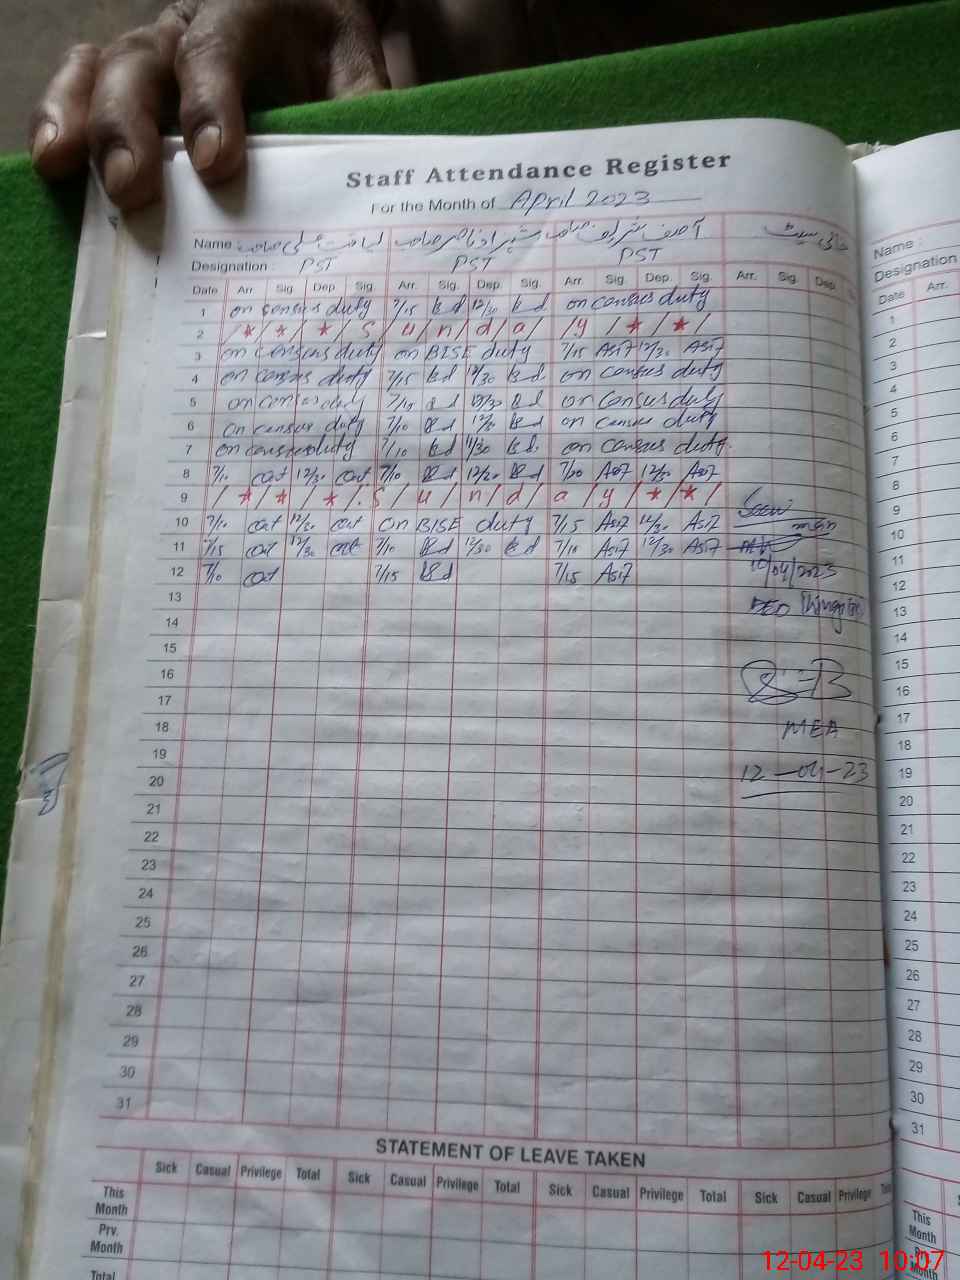 Staff Attendance Register
For the Month of April 2023
Name : کرامت علی صاحب شہزاد ناصر صاحب آصف شریف صاحب خالی سیٹ
Designation : PST PST PST
Date Arr. Sig. Dep. Sig. Arr. Sig. Dep. Sig. Arr. Sig. Dep. Sig. Arr. Sig. Dep.
1 on census duty 7/15 12/30 on census duty
2 / * / * / * / S / u / n / d / a / y / * / * /
3 on census duty on BISE duty 7/15 Asif 12/30 Asif
4 on census duty 7/15 12/30 on census duty
5 on census duty 7/10 12/30 on census duty
6 on census duty 7/10 12/30 on census duty
7 on census duty 7/10 11/30 on census duty
8 7/10 12/30 7/10 12/30 7/20 Asif 12/30 Asif
9 / * / * / * / S / u / n / d / a / y / * / * /
10 7/10 12/30 on BISE duty 7/15 Asif 12/30 Asif
11 7/15 12/30 7/10 12/30 7/10 Asif 12/30 Asif
12 7/10 7/15 7/15 Asif
Seen
10/04/2023
13
14
15
16
17
18 MEA
19
20 12-04-23
21
22
23
24
25
26
27
28
29
30
31
STATEMENT OF LEAVE TAKEN
Sick Casual Privilege Total Sick Casual Privilege Total Sick Casual Privilege Total Sick Casual Privilege
This Month
Prv. Month
Total
Name :
Designation
Date Arr.
1
2
3
4
5
6
7
8
9
10
11
12
13
14
15
16
17
18
19
20
21
22
23
24
25
26
27
28
29
30
31
This Month
12-04-23 10:07